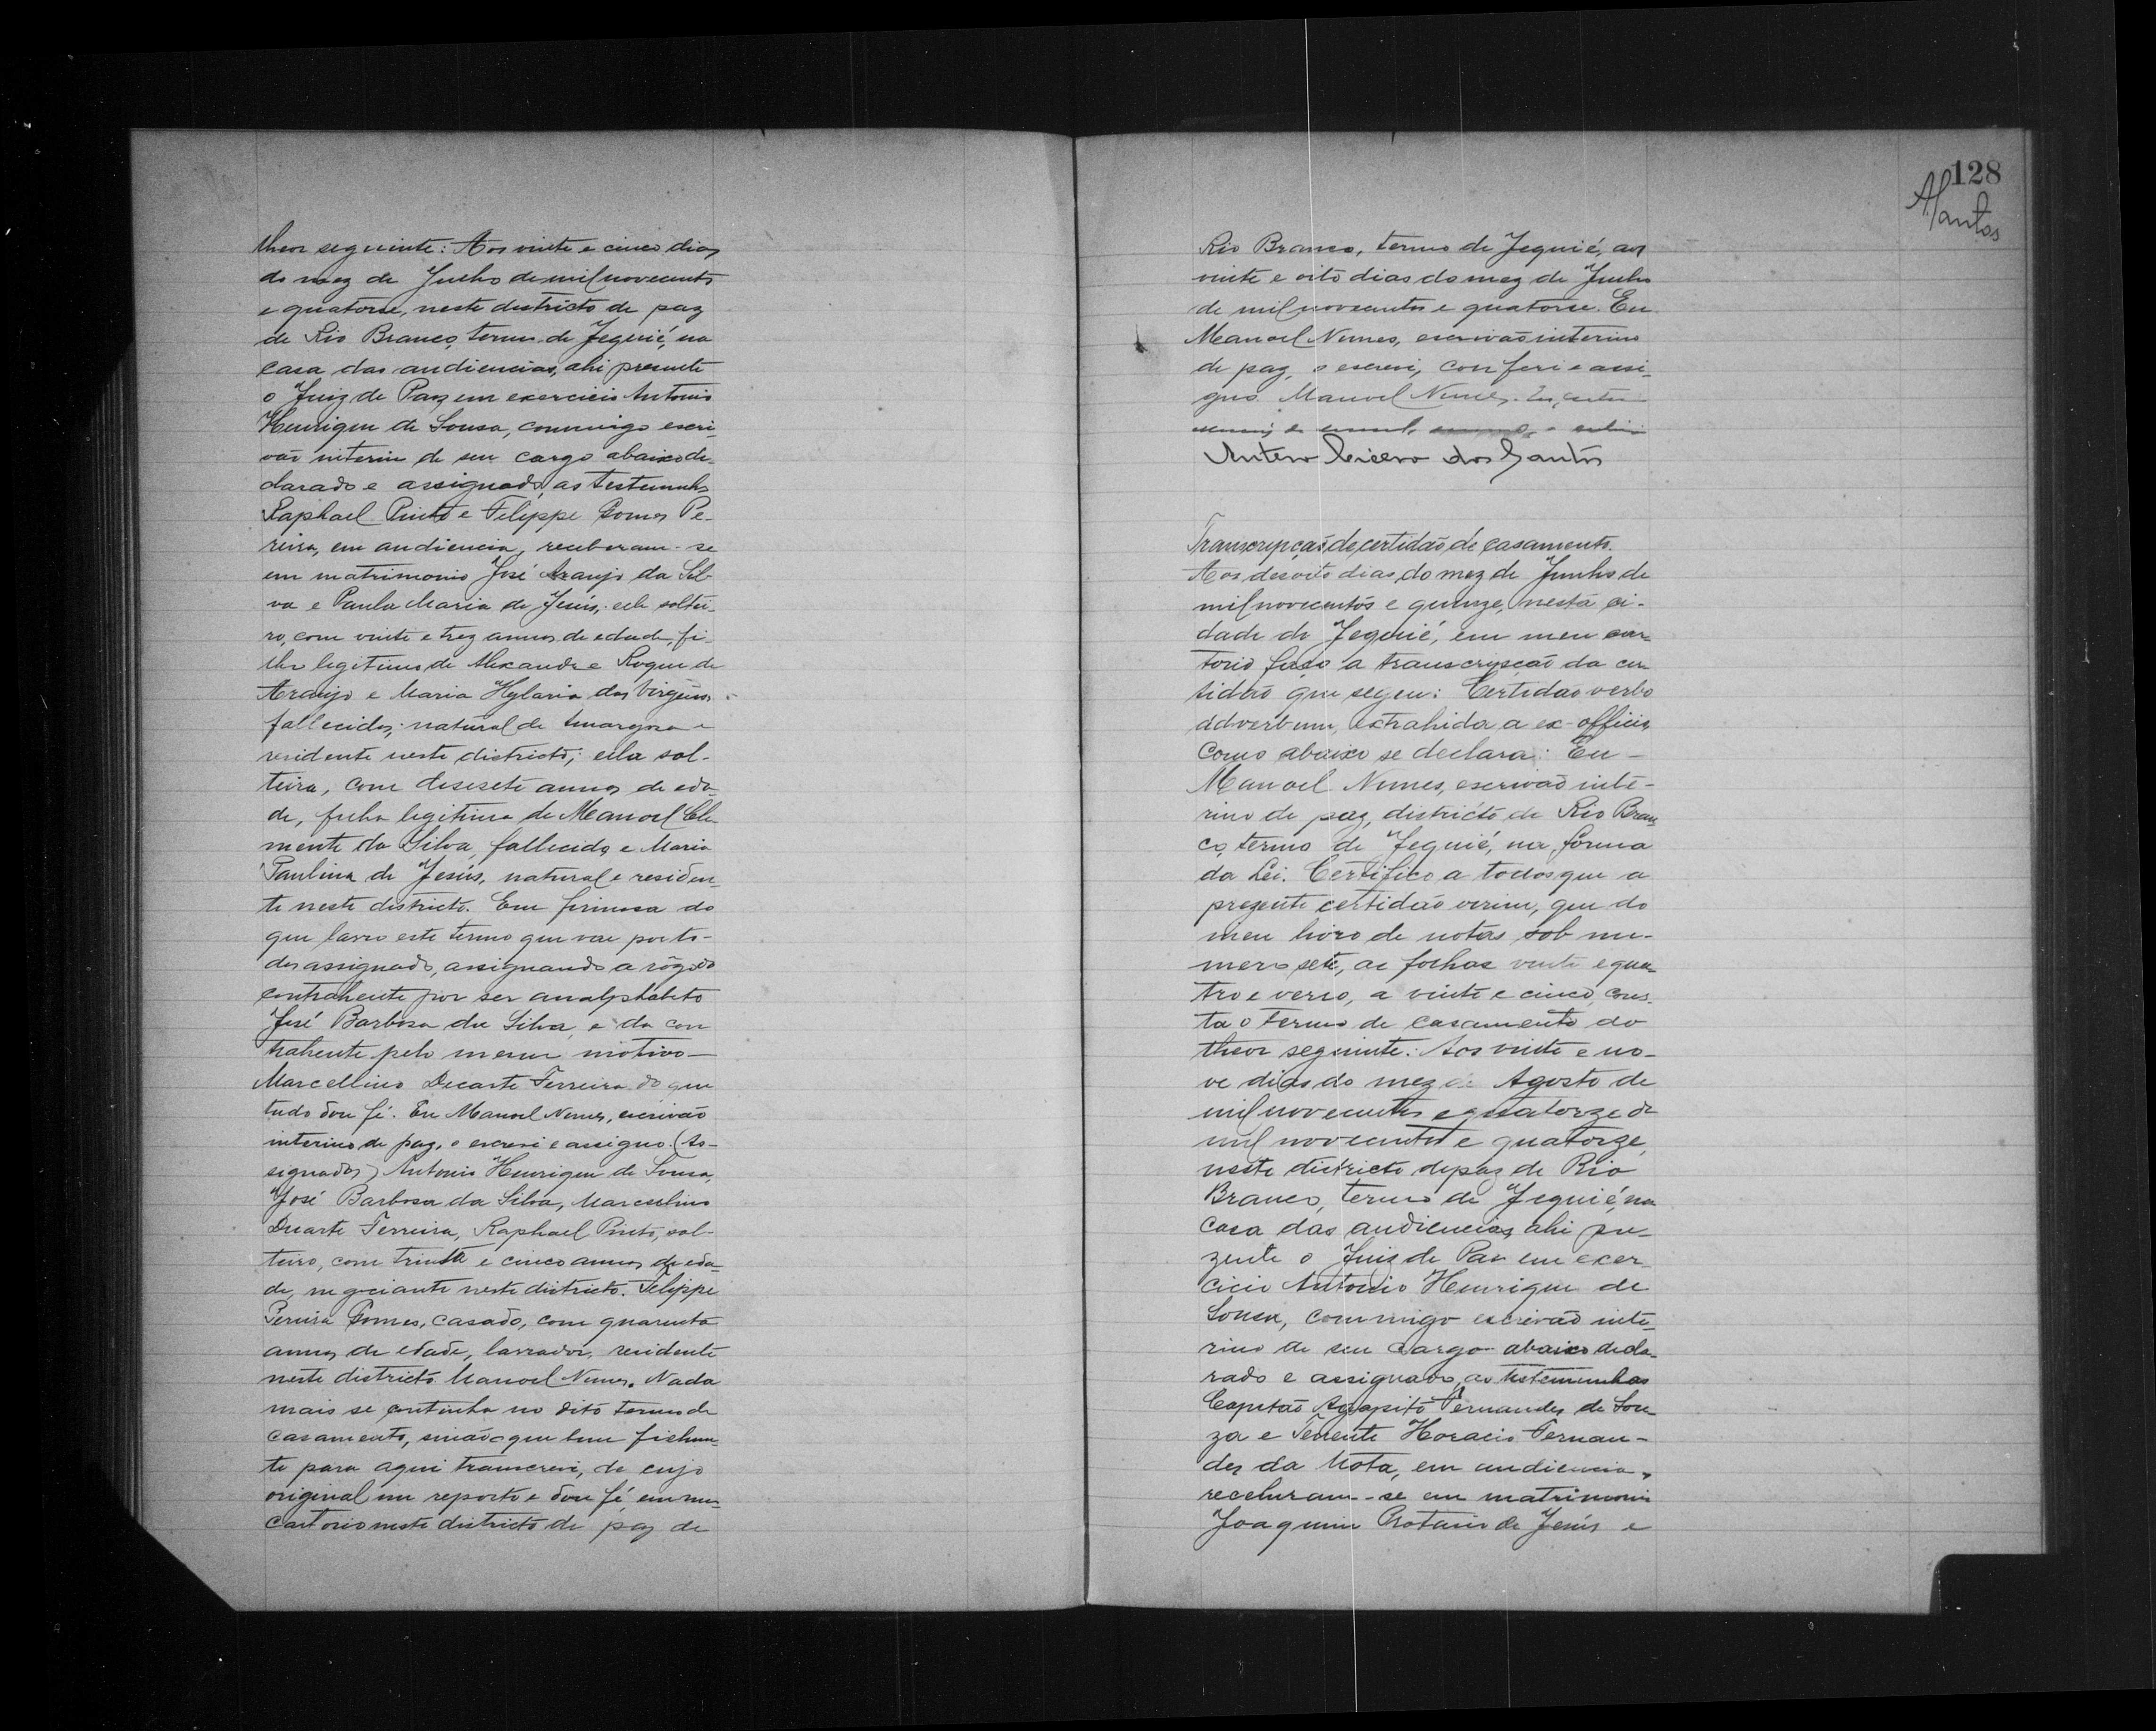 theor seguinte: Aos vinte e cinco dias
do mez de Junho de mil novecentos
e quatorse, neste districto de paz
de Rio Branco, termo de Jequié, na
casa das audiencias, ahi presente
o Juiz de Paz em exercicio Antonio
Henrique de Sousa, commigo escri-
vão interino de seu cargo abaixo de-
clarado e assignado, as testemunhas
Raphael Pinto e Felippe Gomes Pe-
reira, em audiencia, receberam-se
em matrimonio José Araujo da Sil-
va e Paula Maria de Jesús, elle soltei-
ro, com vinte e trez annos de edade, fi-
lho legitimo de Alexandre Roque de
Araujo e Maria Hylaria das Virgens
fallecidos; natural de Amargosa e
residente neste districto; ella sol-
teira, com desesete annos de eda-
de, filha legitima de Manoel Cle-
mente da Silva, fallecido, e Maria
Paulina de Jesús, natural e residen-
te neste districto. Em firmesa do
que lavro este termo que vae por to-
dos assignado, assignando a rôgo do
contrahente por ser analphabeto
José Barbosa da Silva, e da con
trahente pelo mesmo motivo—
Marcellino Duarte Ferreira do que
tudo dou fé. Eu Manoel Nunes, escrivão
interino de paz, o escrevi e assigno. (As-
signados) Antonio Henrique de Sousa,
José Barbosa da Silva, Marcelino
Duarte Ferreira, Raphael Pinto, sol-
teiro, com trinta e cinco annos de eda-
de, negociante neste districto. Felippe
Pereira Gomes, casado, com quarenta
annos de edade, lavrador, residente
neste districto. Manoel Nunes. Nada
mais se continha no dito termo de
casamento, sinão o que bem fielmen-
te para aqui transcrevi, de cujo
original me reporto e dou fé, em meu
cartorio neste districto de paz de
128
ASantos
Rio Branco, termo de Jequié, aos
vinte e oito dias do mez de Junho
de mil novecentos e quatorse. Eu
Manoel Nunes, escrivão interino
de paz, o escrevi, conferi e assi-
gno. Manoel Nunes. Eu,
Antero Cicero dos Santos
Transcripção de certidão de casamento.
Aos desoito dias do mez de Junho de
mil novecentos e quinze, nesta ci-
dade de Jequié, em meu car-
torio faço a transcripção da cer
tidão que segue: Certidão verbo
adverbum, extrahida a ex-officio,
como abaixo se declara: Eu—
Manoel Nunes, escrivão inte-
rino de paz, districto de Rio Bran
co, termo de Jequié, na forma
da Lei. Certifico a todos que a
prezente certidão virem, que do
meu livro de notas sob nu-
mero sete, as folhas vinte e qua-
tro e verso, a vinte e cinco, cons-
ta o termo de casamento do
theor seguinte: Aos vinte e no-
ve dias do mez de Agosto de
mil novecentos e quatorze de
mil novecentos e quatorze,
neste districto de paz de Rio
Branco, termo de Jequié, na
casa das audiencias, ahi pre-
zente o Juiz de Paz em exer
cicio Antonio Henrique de
Souza, commigo escrivão inte-
rino de seu cargo abaixo decla-
rado e assignado, as testemunhas
Capitão Agapito Fernandes de Sou-
za e Tenente Horacio Fernan-
des da Mota, em audiencia,
receberam-se em matrimonio
Joaquim Protasio de Jesús e